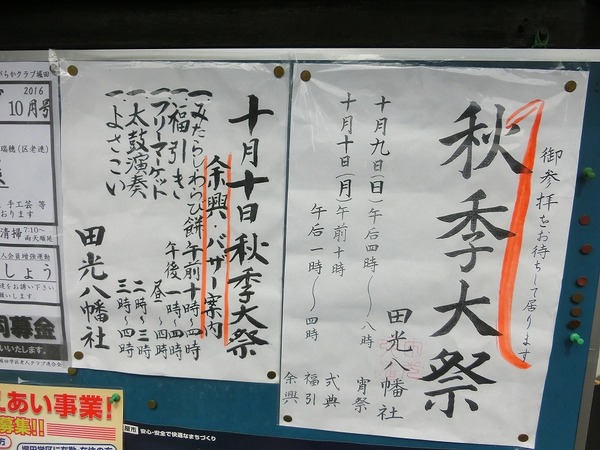 御参拝をお待ちして居ります
秋季大祭
十月九日(日)午后四時〜八時 宵祭
十月十日(月)午前十時 式典
午后一時〜四時 福引
余興
田光八幡社
十月十日秋季大祭
余興・バザー案内
一、みたらしわらび餅 午前十時〜四時
一、福引き 午後一時〜四時
一、フリーマーケット 昼〜四時
一、太鼓演奏 二時〜三時
一、よさこい 三時〜四時
田光八幡社
がらかクラブ堀田
2016
10月号
瑞穂(区老連)
手工芸 等
おります
清掃 7:10〜
雨天順延
人会員増強運動
しょう
同募金
いいたします。
堀田学区老人クラブ連合会
えあい事業!
募集!!
屋市 安心・安全で快適なまちづくり